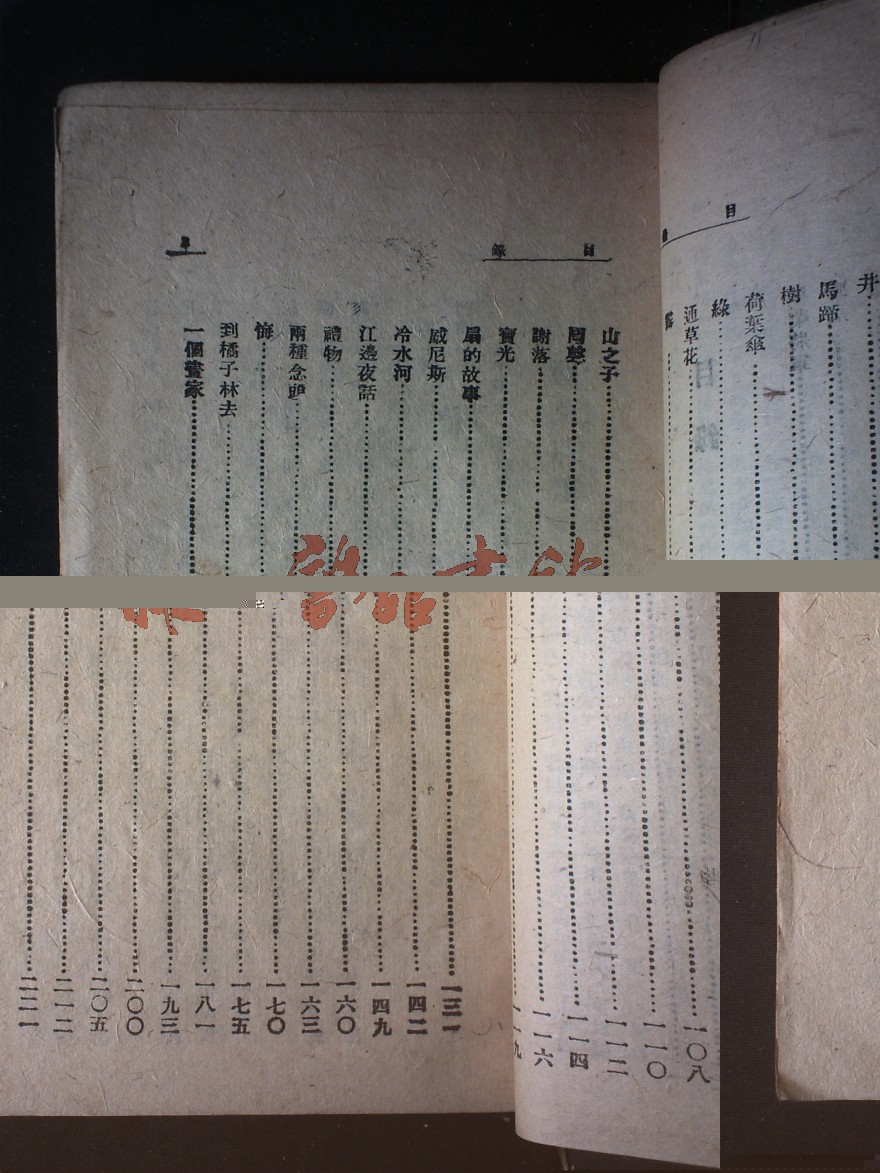 目
井
馬蹄
樹
荷葉傘
綠
通草花
目錄
山之子
回聲
謝落
寶光
扇的故事
威尼斯
冷水河
江邊夜話
禮物
兩種念頭
悔
到橘子林去
一個畫家
一〇八
一一〇
一一二
一一四
一一六
一一九
一三一
一四二
一四九
一六〇
一六三
一七〇
一七五
一八一
一九三
二〇〇
二〇五
二一二
二二一